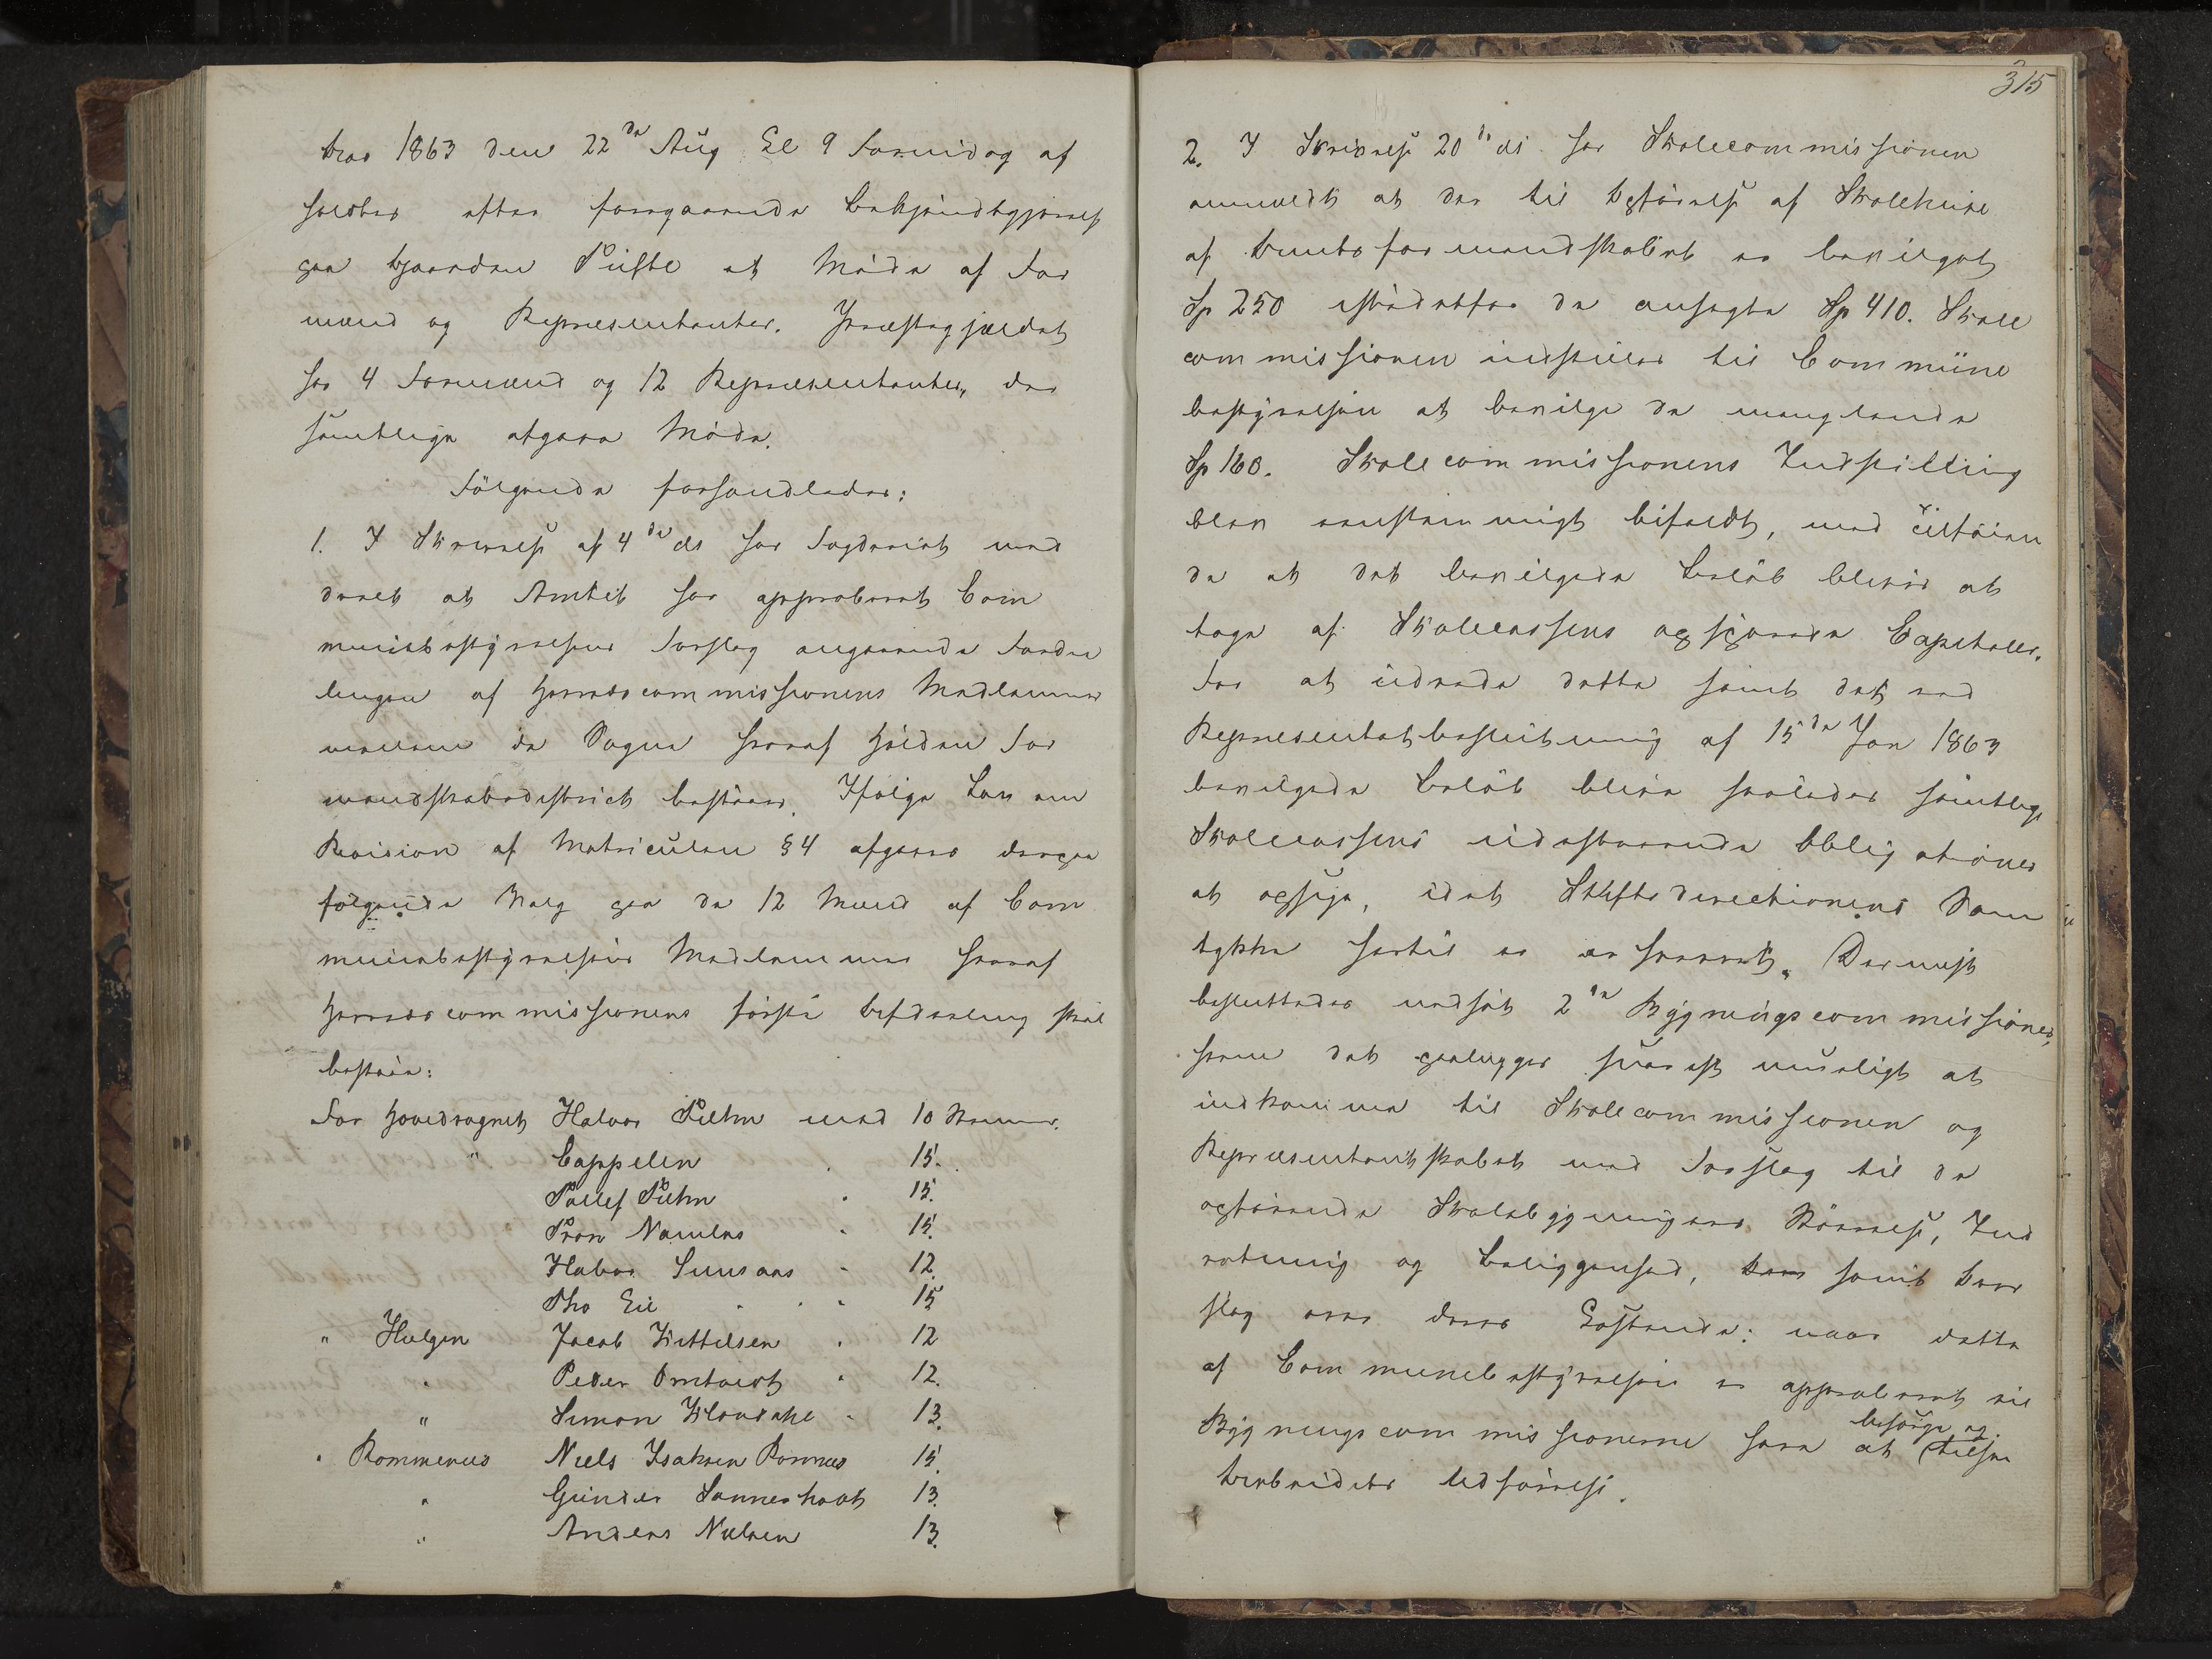 Aar 1863 den 22de Aug Kl 9 Formidag af
holdtes efter foregaaende Bekjendtgjørelse
paa Gaarden Tufte et Møde af For
mænd og Repræsentanter. Præstegjeldet
har 4 Formænd og 12 Repræsentanter, der
samtlige afgave Møde.
Følgende forhandledes:
1. I Skrivelse af 4de ds har Fogderiet med
deelt at Amtet har approberet Com
munebestyrelsens Forslag angaaende Forde
lingen af Herredscommissionens Medlemmer
mellem de Sogne hvoraf Hoiden For
mandskabsdistrict bestaaer. Ifølge Lov om
Revision af Matriculen § 4 afgaves derpaa
følgende Valg paa de 12 Mænd af Com
munebestyrelsens Medlemmer hvoraf
Herredscommissionens første Afdeeling skal
bestaae:
For Hovedsognet Halvor Tufte med 10 Stemmer.
" Cappelen 15.
Tollef Tufte 15.
Tron Namløs 15.
Halvor Suusaas 12.
Tho Eie 15
" Helgen Jacob Kittilsen 12
Peder Omtvedt 12.
" Simon Klovdahl 13.
" Rommenes Niels Isaksen Romnes 15.
" Gunder Sanneshoat 13.
" Anders Nielsen 13.
315
2. I Skrivelse 20de ds har Skolecommissionen
anmeldt at der til Opførelse af Skolehuse
af Amtsformandskabet er bevilget
Sp 250 istedetfor de ansøgte Sp 410. Skole
commissionen indstiller til Commune
bestyrelsen at bevilge de manglende
Sp 160. Skolecommissionens Indstilling
blev eenstemmigt bifaldt, med Tilføien
de at det bevilgede Beløb bliver at
tage af Skolecassens opsparede Capitaler.
For at udrede dette samt det ved
Repræsentantbeslutning af 15de Jan 1863
bevilgede Beløb blive saaledes samtlige
Skolecassens udestaaende Obligationer
at opsige, idet Stiftsdirectionens Sam
tykke hertil er erhvervet. Dernæst
besluttedes nedsat 2de Bygningscommissioner,
hvem det paaligger snarest mueligt at
indkomme til Skolecommissionen og
Repræsentantskabet med Forslag til de
opførende Skolebygningers Størrelse, Ind
retning og Beliggenhed, samt Over
slag over deres Kostende; naar dette
af Communebestyrelsen er approberet vil
Bygningscommissionerne have at besørge og tilsee
Arbeidets Udførelse.